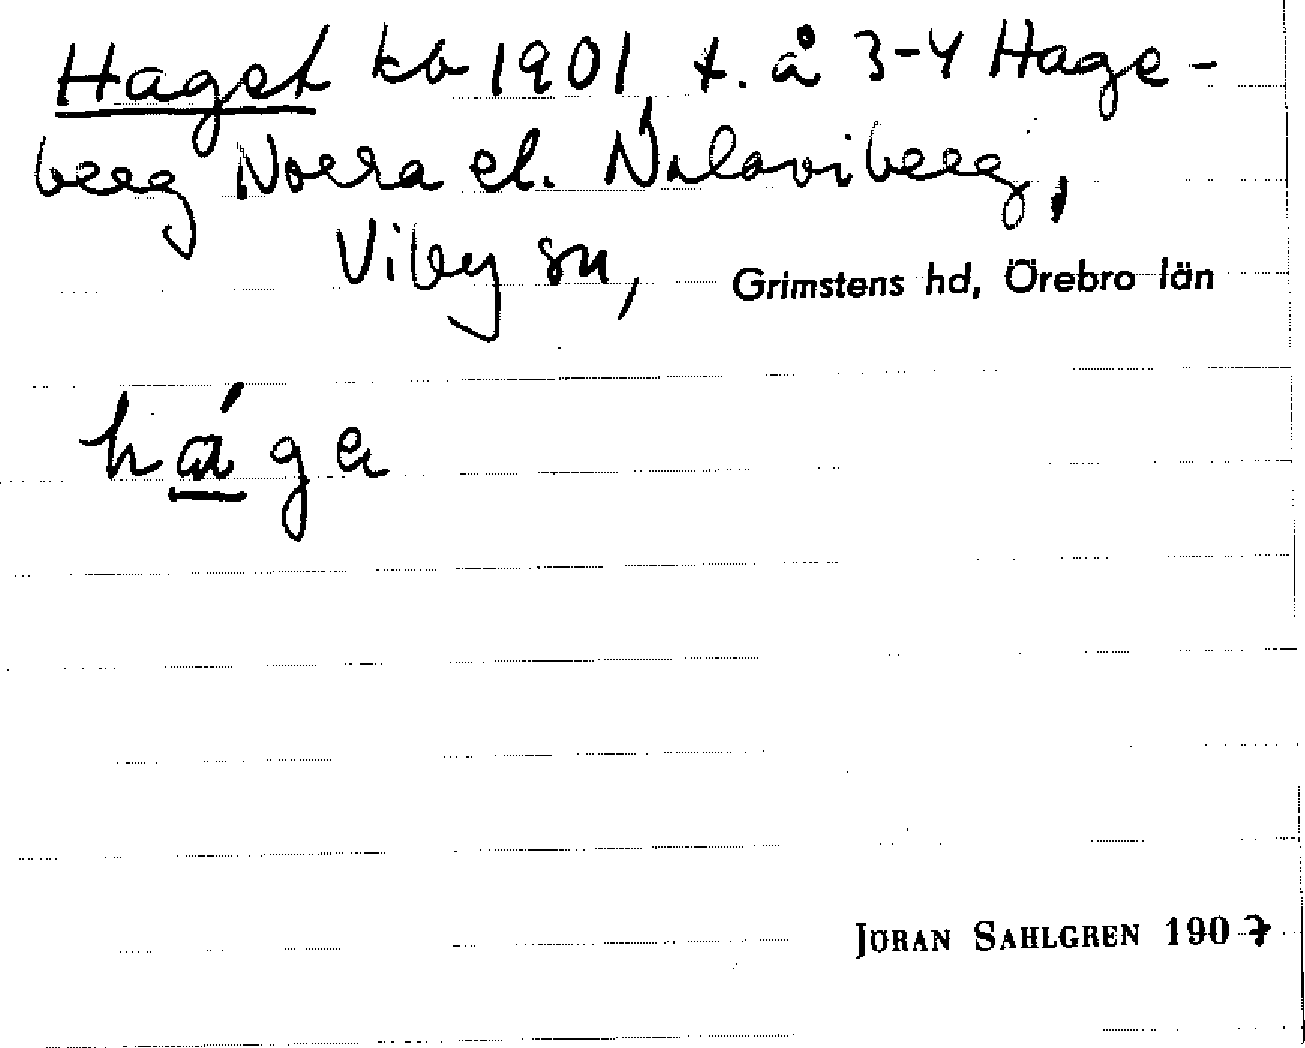 Haget kb 1901 t. å 3-4 Hage-
berg Norra el. Nalaviberg,
Viby sn, Grimstens hd, Örebro län
háge
JÖRAN SAHLGREN 1907